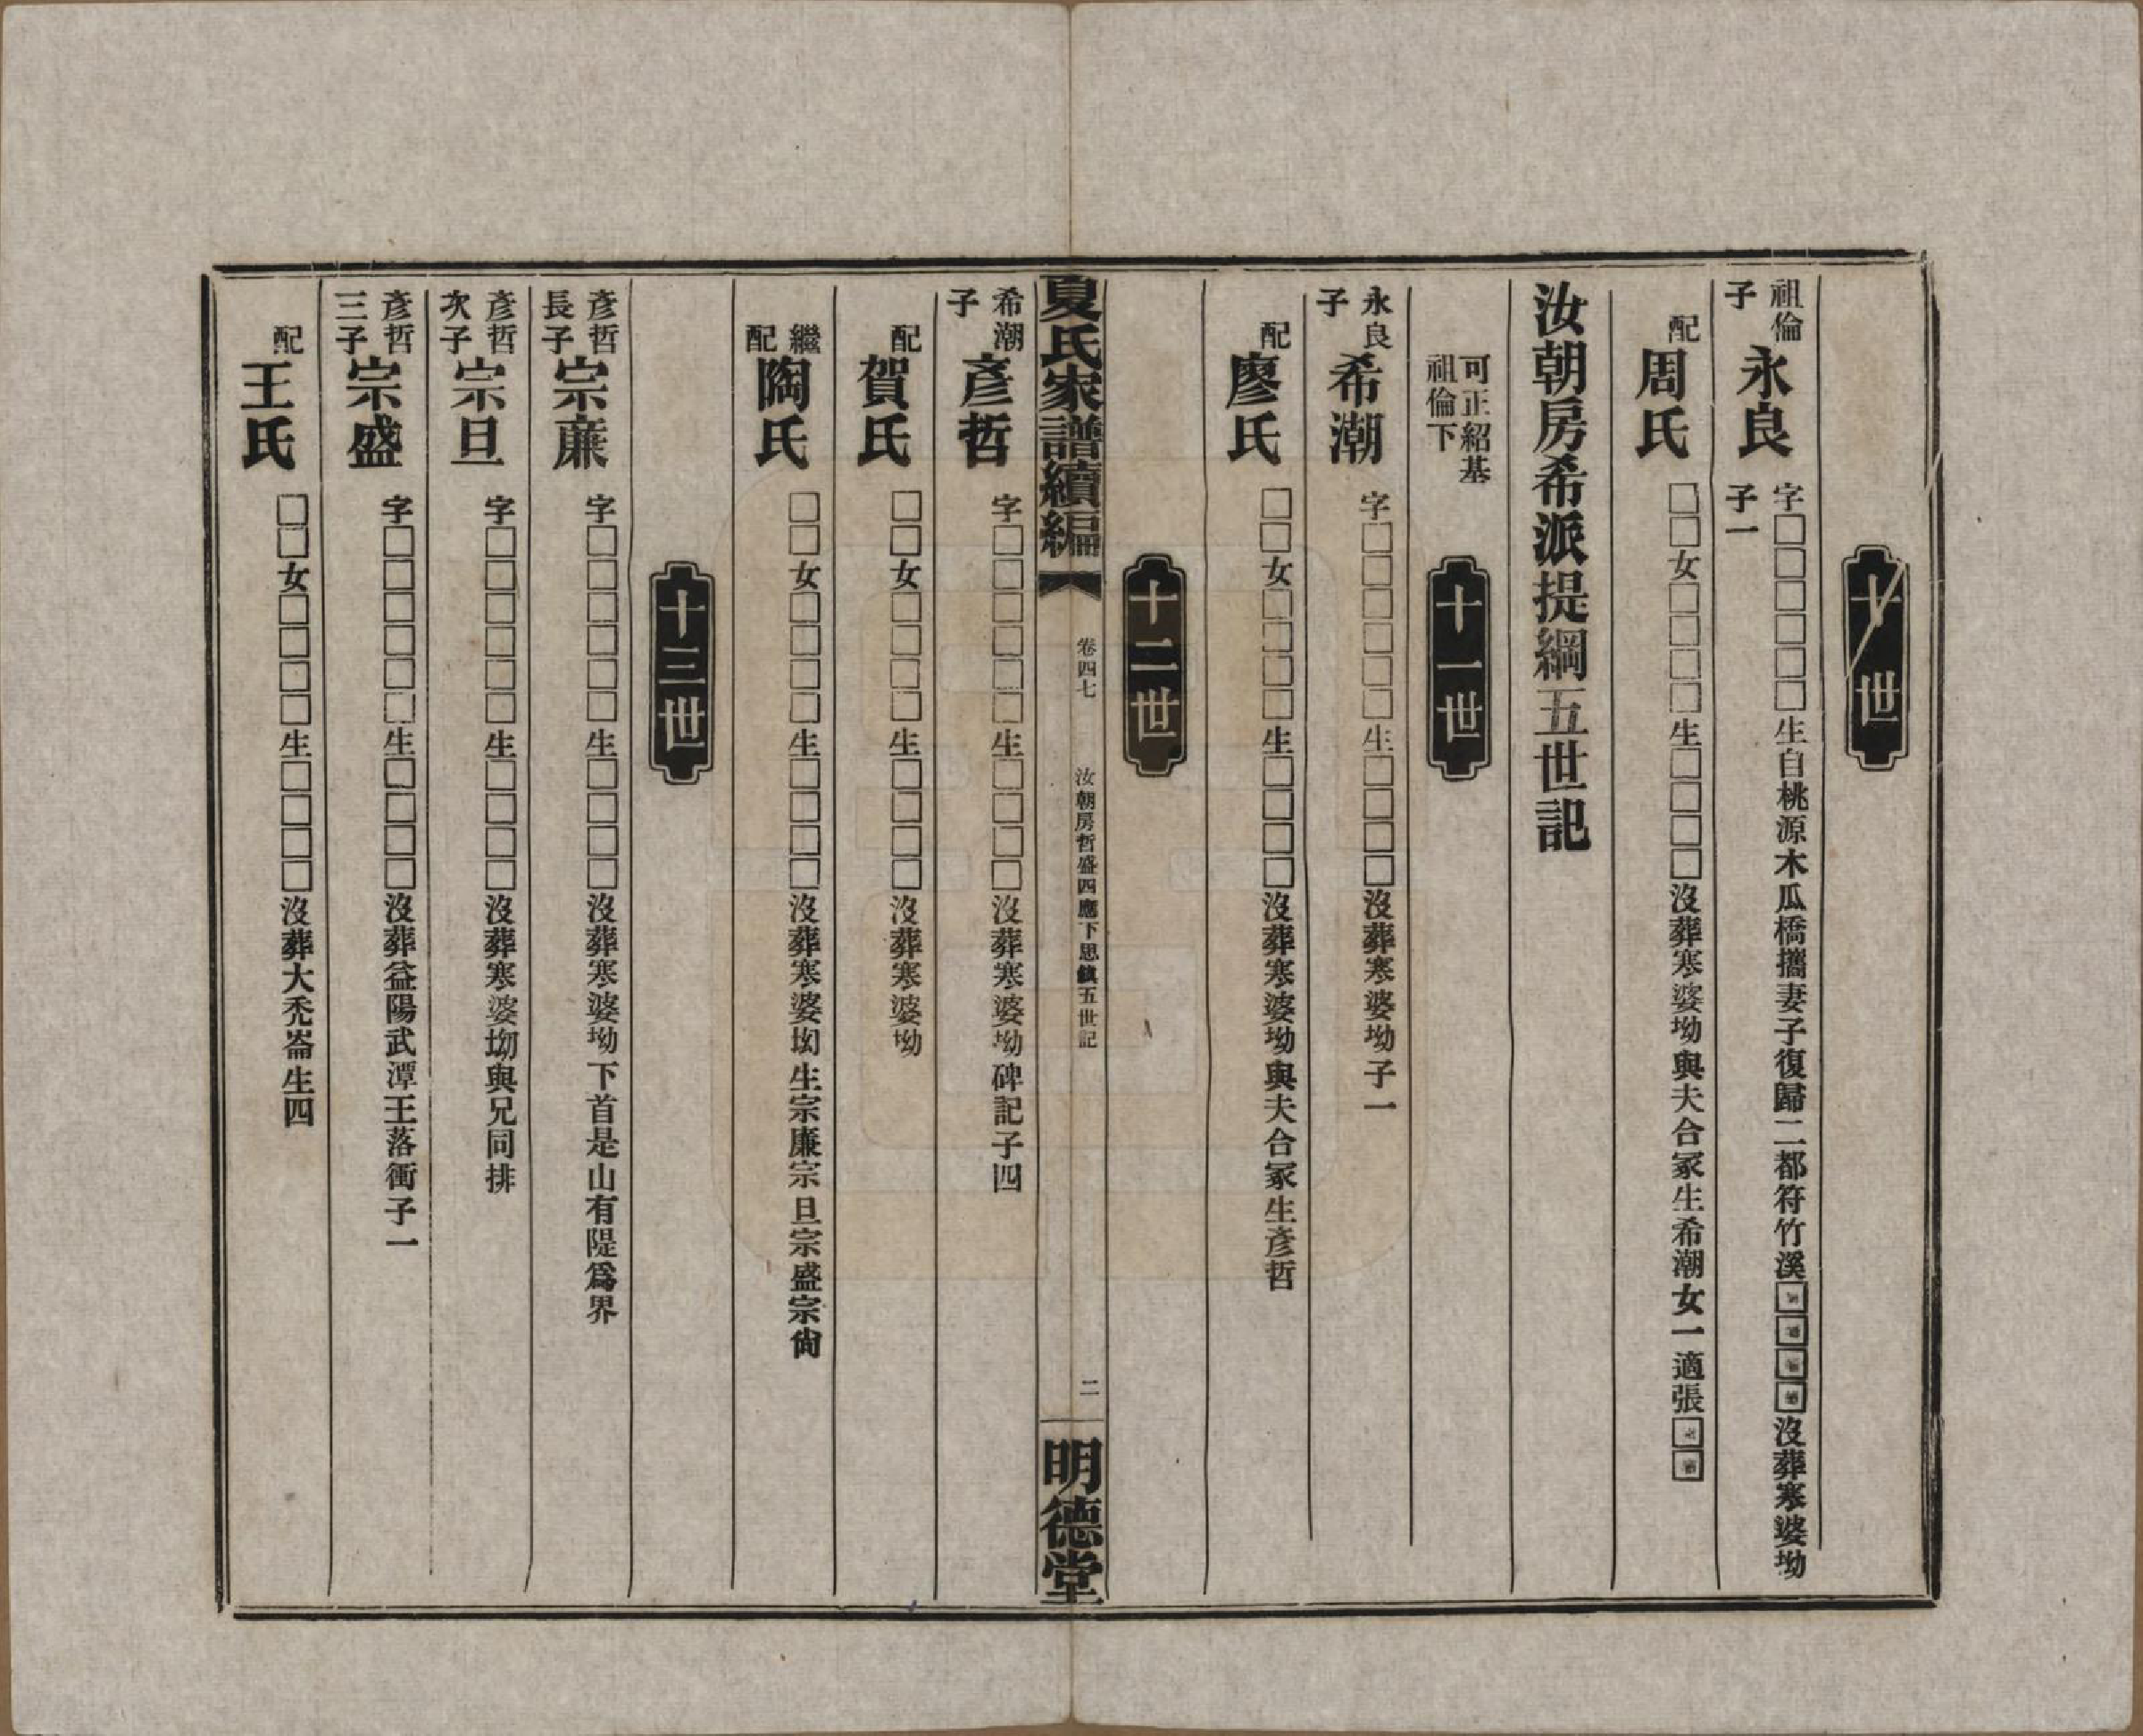 十世
祖倫子 永良 字□□□□□□生自桃源木瓜橋攜妻子復歸二都符竹溪□□□□沒葬寒婆坳
子一
配 周氏 □□女□□□□生□□□□沒葬寒婆坳與夫合冢生希潮女一適張□□
汝朝房希派提綱五世記
十一世
可正紹基
祖倫下
永良子 希潮 字□□□□□□生□□□□沒葬寒婆坳子一
配 廖氏 □□女□□□□生□□□□沒葬寒婆坳與夫合冢生彥哲
十二世
夏氏家譜續編
卷四七
汝朝房哲盛四應下思鎮五世記
二
明德堂
希潮子 彥哲 字□□□□□□生□□□□沒葬寒婆坳碑記子四
配 賀氏 □□女□□□□生□□□□沒葬寒婆坳
繼配 陶氏 □□女□□□□生□□□□沒葬寒婆坳生宗廉宗旦宗盛宗尙
十三世
彥哲長子 宗廉 字□□□□□□生□□□□沒葬寒婆坳下首是山有隄爲界
彥哲次子 宗旦 字□□□□□□生□□□□沒葬寒婆坳與兄同排
彥哲三子 宗盛 字□□□□□□生□□□□沒葬益陽武潭王落衝子一
配 王氏 □□女□□□□生□□□□沒葬大禿崙生四